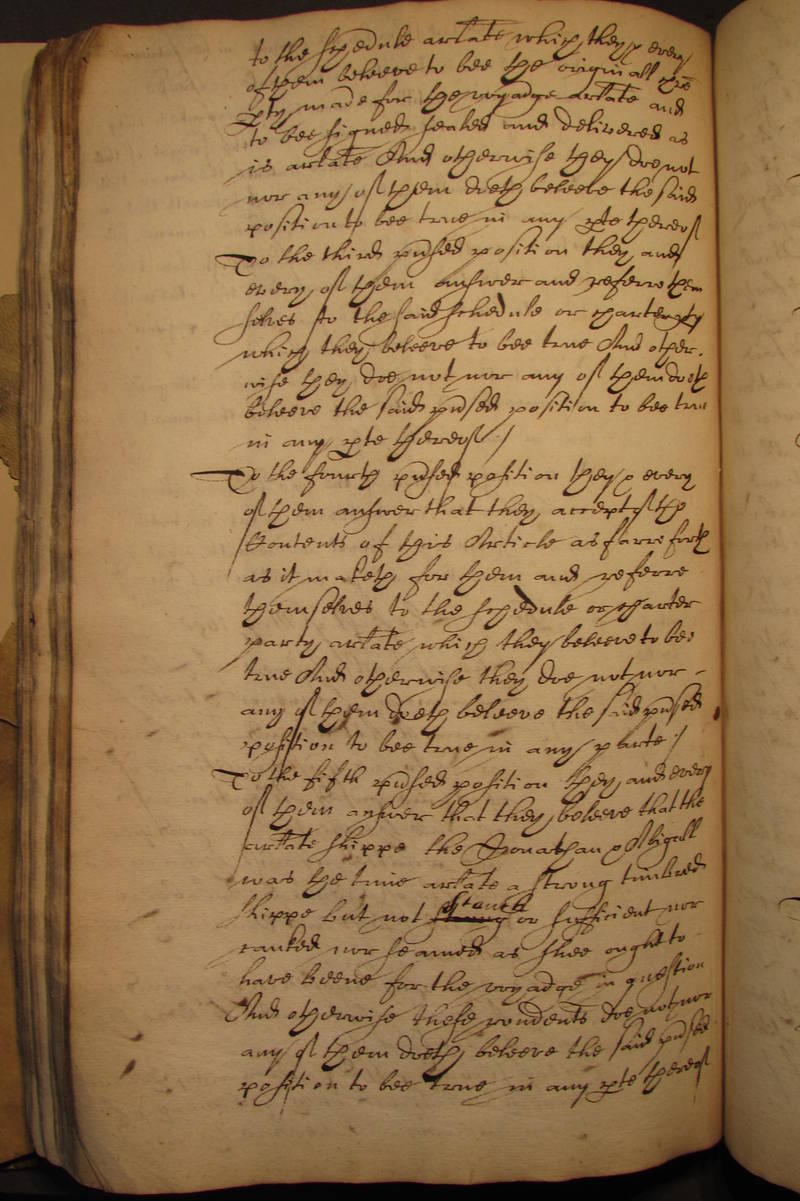 to the schedule arlate which they & every
of them beleeve to bee the originall
pty made for the voyadge arlate and
to bee signed sealed and delivered as
is arlate And otherwise they doe not
nor any of them doeth beleeve the said
position to bee true in any pte thereof
To the third pnsed position they and
every of them answer and referre them
selves to the said schedule or charter pty
which they beleeve to bee true And other.
wise they doe not nor any of them doeth
beleeve the said pnsed position to bee true
in any pte thereof /
To the fourth pnsed position they & every
of them answer that they accept of the
Contents of this Article as farre forth
as it maketh for them and referre
themselves to the schedule or charter
party arlate which they beleeve to bee
true And otherwise they doe not nor -
any of them doeth beleeve the said pnsed
position to bee true in any parte /
To the fifth pnsed position they and every
of them answer that they beleeve that the
arlate shippe the Jonathan & Abigall
was the time arlate a strong timbred
shippe but not strong stanch or sufficient nor
caulked nor seamed as shee ought to
have beene for the voyadge in question
And otherwise these rondents doe not nor
any of them doeth beleeve the said pnsed
position to bee true in any pte thereof